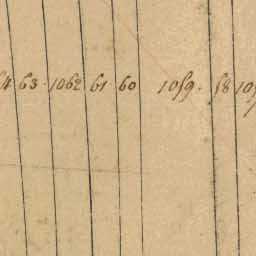 63. 1062 61 60 1059. 58